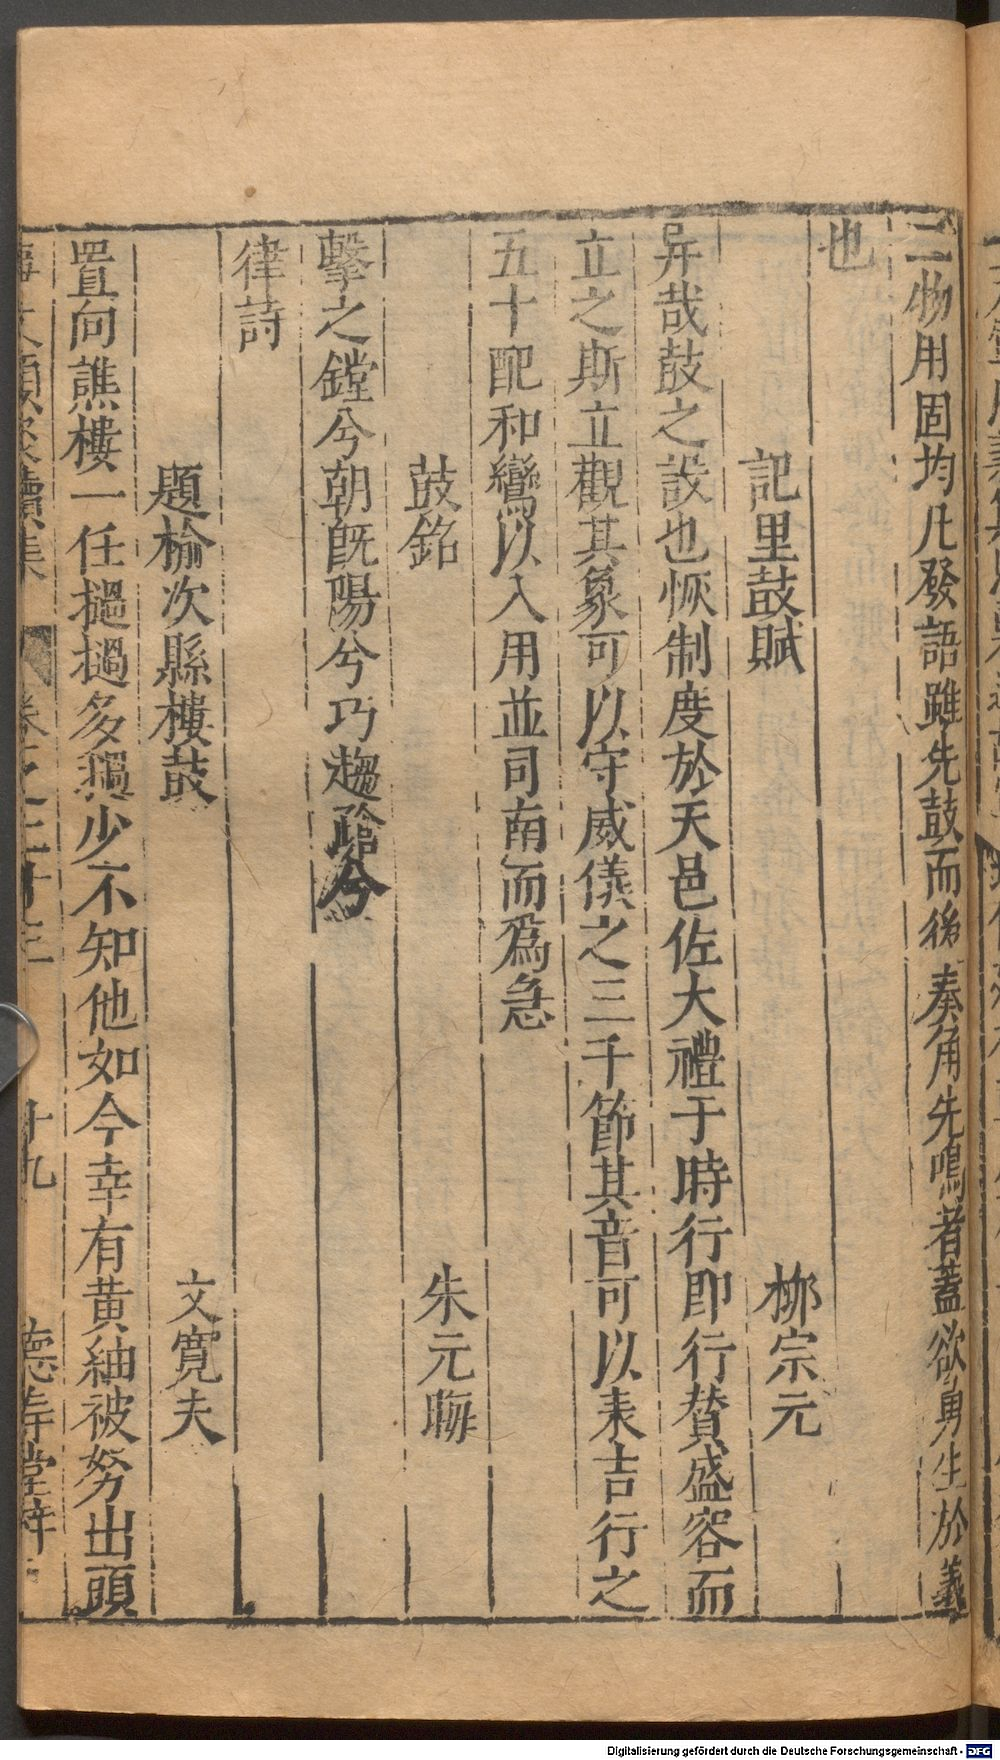 二物用固均凡發語雖先鼓而後奏角先鳴者蓋欲勇生於義
也
記里鼓賦 栁宗元
异哉鼓之設也恢制度於天邑佐大禮于時行即行賛盛容而
立之斯立觀其象可以守威儀之三千節其音可以表吉行之
五十配和鸞以入用並司南而爲急
鼓銘 朱元晦
擊之鏜兮朝旣暘兮巧趨蹌兮
律詩
題榆次縣樓鼓 文寛夫
置向譙樓一任撾撾多撾少不知他如今幸有黄紬被努出頭
事文類聚續集 卷之二十三 十九 德壽堂梓
Digitalisierung gefördert durch die Deutsche Forschungsgemeinschaft - DFG